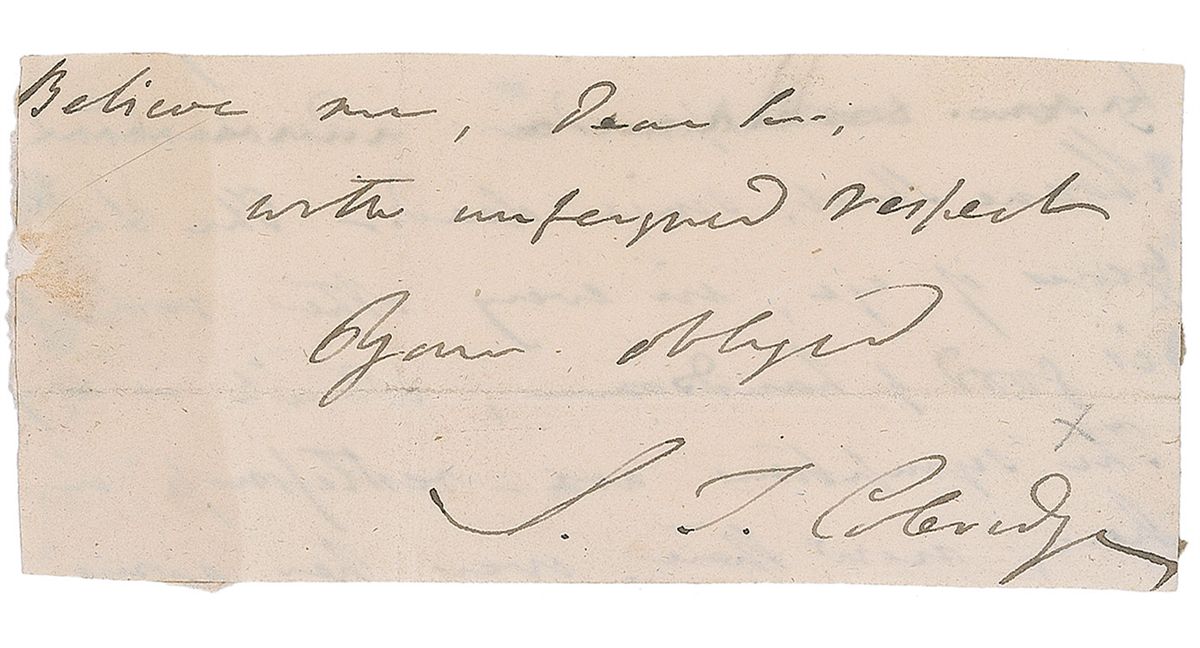 Believe me, Dear Sir,
with unfeigned respect
Your obliged
S. T. Coleridge